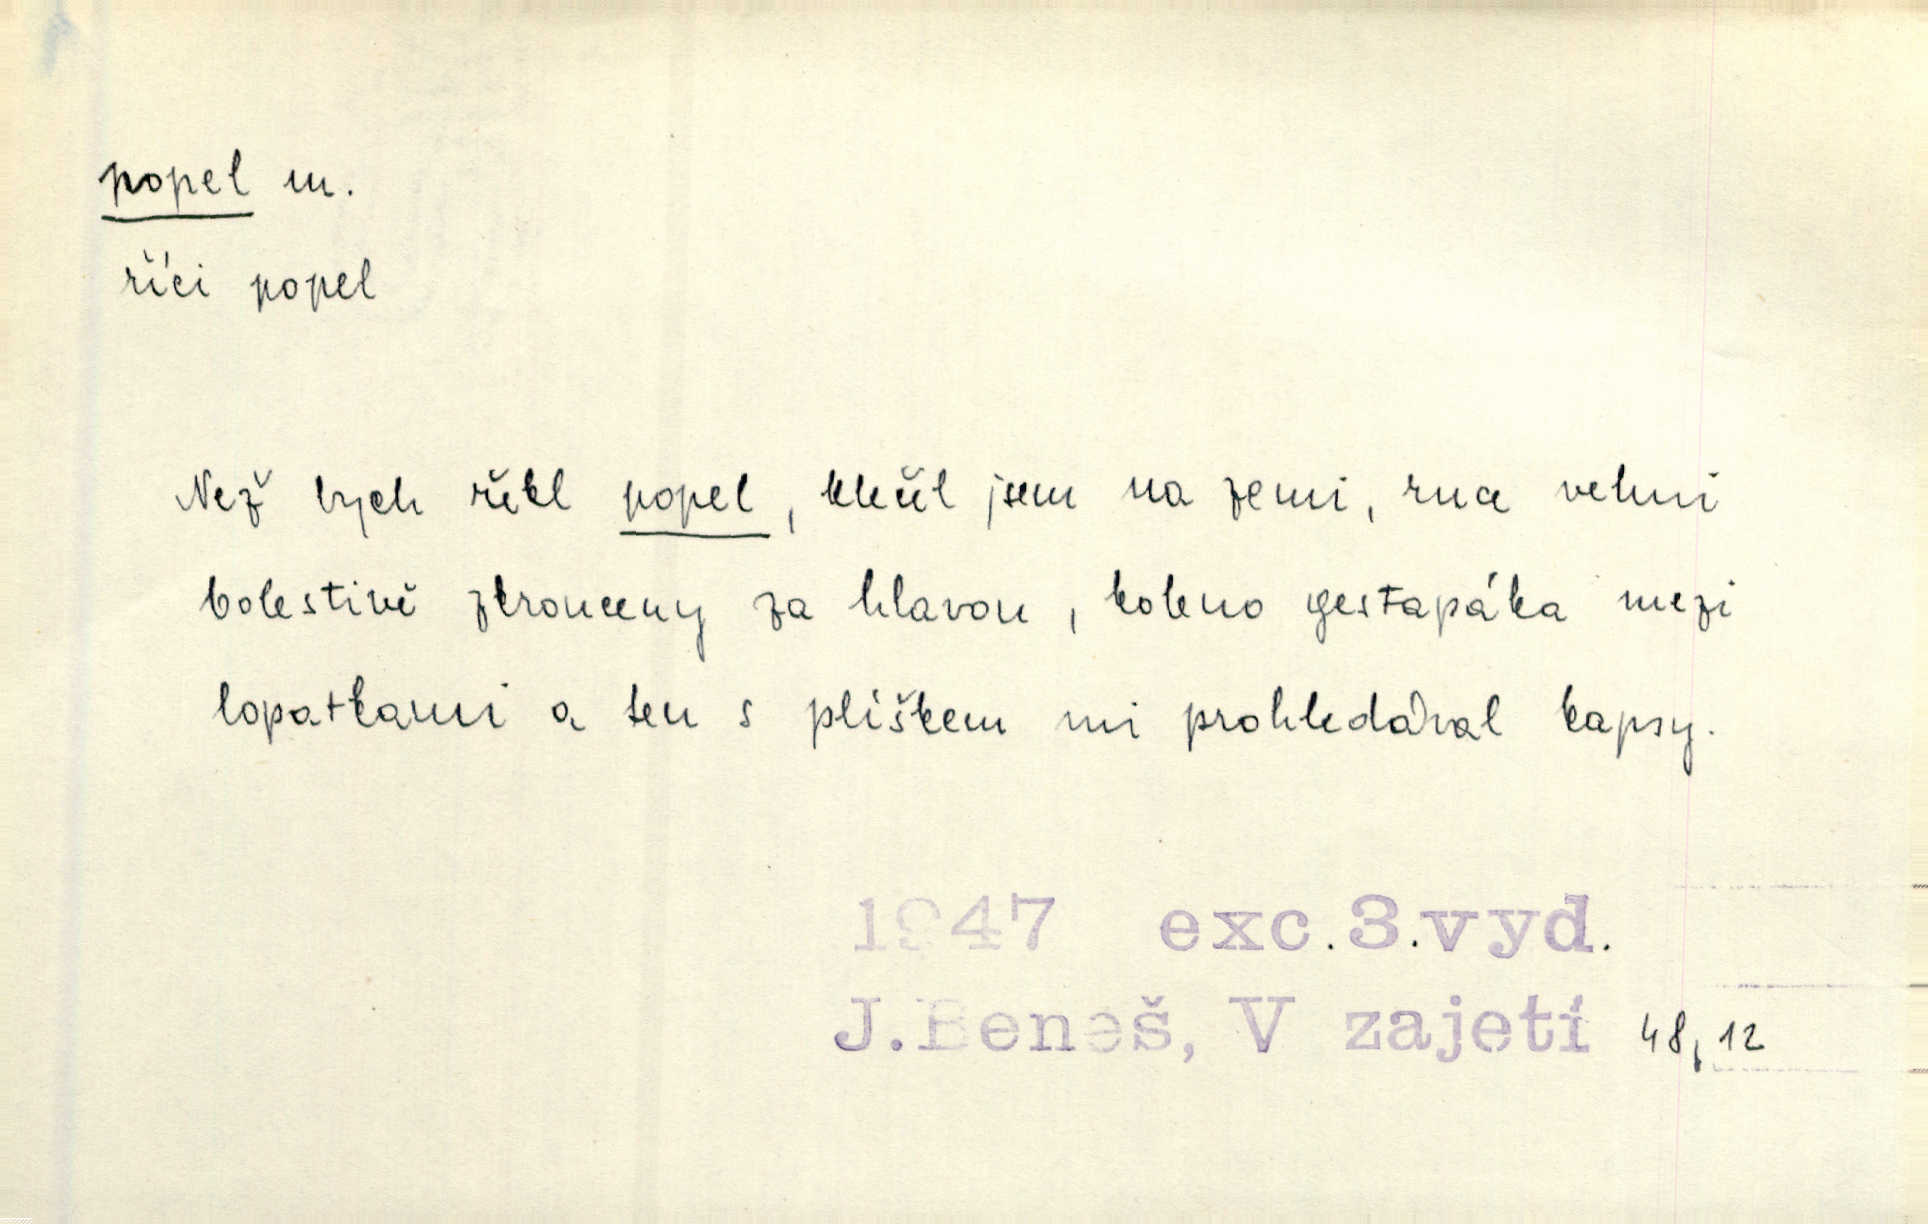 popel m.
říci popel
Než bych řekl popel, klečel jsem na zemi, ruce velmi
bolestivě zkrouceny za hlavou, koleno gestapáka mezi
lopatkami a ten s plíškem mi prohledával kapsy.
1947 exc.3.vyd.
J.Beneš, V zajetí 48,12